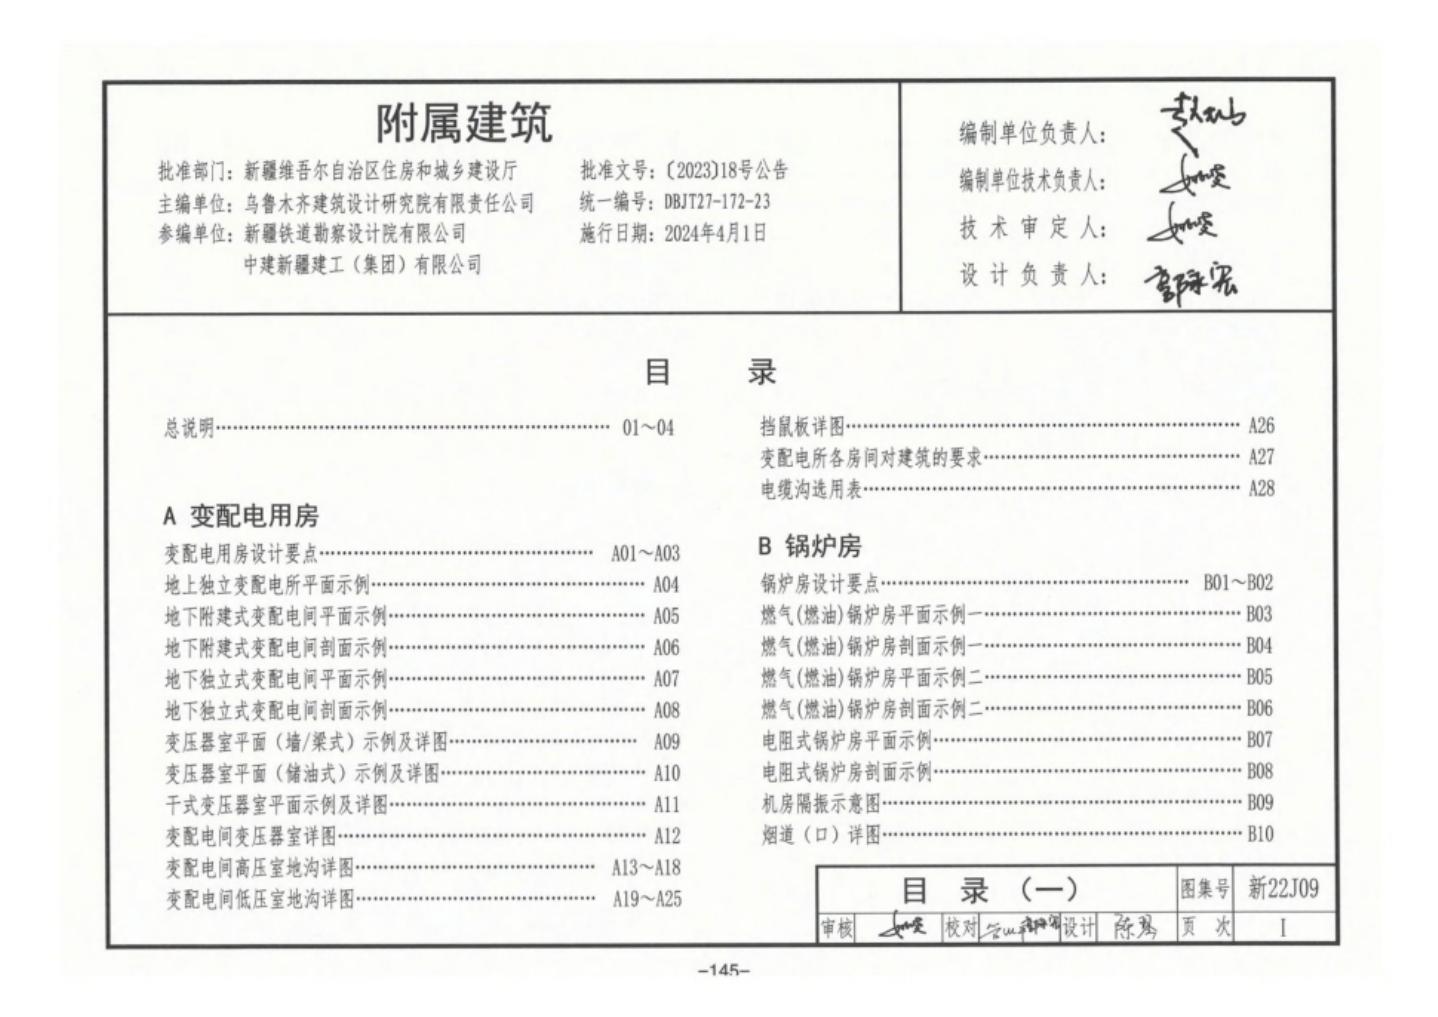 附属建筑
批准部门：新疆维吾尔自治区住房和城乡建设厅
主编单位：乌鲁木齐建筑设计研究院有限责任公司
参编单位：新疆铁道勘察设计院有限公司
中建新疆建工（集团）有限公司
批准文号：〔2023〕18号公告
统一编号：DBJT27-172-23
施行日期：2024年4月1日
编制单位负责人：
编制单位技术负责人：
技术审定人：
设计负责人：
目 录
总说明 01～04
A 变配电用房
变配电用房设计要点 A01～A03
地上独立变配电所平面示例 A04
地下附建式变配电间平面示例 A05
地下附建式变配电间剖面示例 A06
地下独立式变配电间平面示例 A07
地下独立式变配电间剖面示例 A08
变压器室平面（墙/梁式）示例及详图 A09
变压器室平面（储油式）示例及详图 A10
干式变压器室平面示例及详图 A11
变配电间变压器室详图 A12
变配电间高压室地沟详图 A13～A18
变配电间低压室地沟详图 A19～A25
挡鼠板详图 A26
变配电所各房间对建筑的要求 A27
电缆沟选用表 A28
B 锅炉房
锅炉房设计要点 B01～B02
燃气(燃油)锅炉房平面示例一 B03
燃气(燃油)锅炉房剖面示例一 B04
燃气(燃油)锅炉房平面示例二 B05
燃气(燃油)锅炉房剖面示例二 B06
电阻式锅炉房平面示例 B07
电阻式锅炉房剖面示例 B08
机房隔振示意图 B09
烟道（口）详图 B10
目 录 （一） 图集号 新22J09
审核 校对 设计 页 次 I
-145-